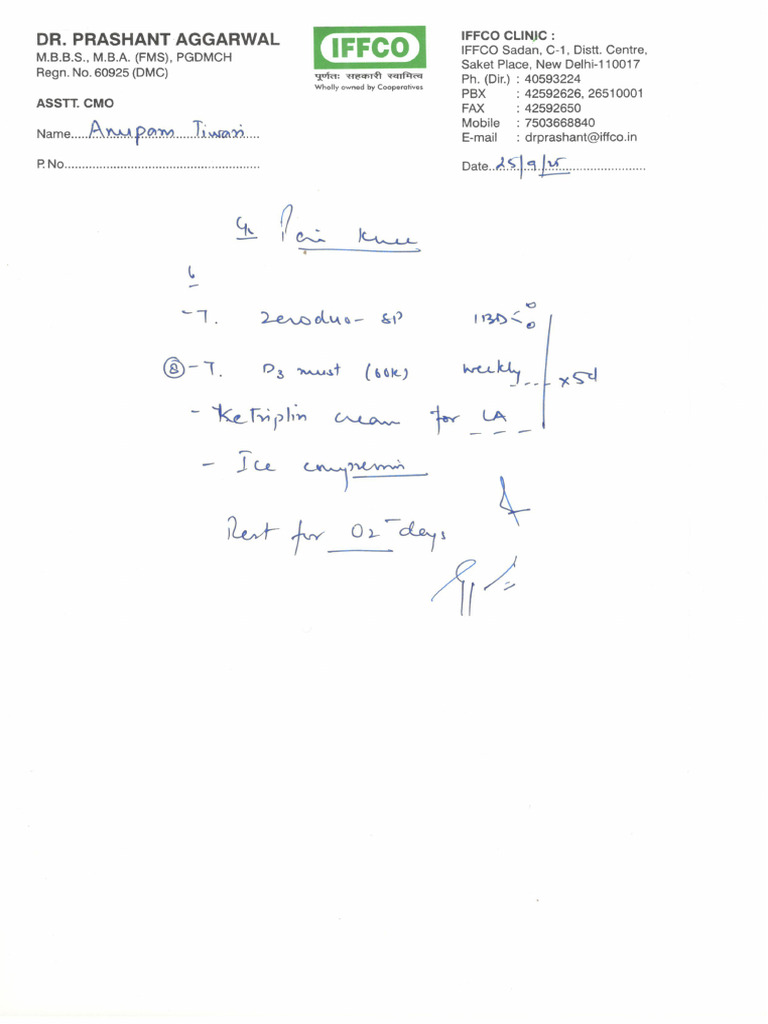 DR. PRASHANT AGGARWAL
M.B.B.S., M.B.A. (FMS), PGDMCH
Regn. No. 60925 (DMC)
ASSTT. CMO
Name.....Anupam Tiwari....
P. No............................................................
IFFCO
पूर्णतः सहकारी स्वामित्व
Wholly owned by Cooperatives
IFFCO CLINIC :
IFFCO Sadan, C-1, Distt. Centre,
Saket Place, New Delhi-110017
Ph. (Dir.) : 40593224
PBX : 42592626, 26510001
FAX : 42592650
Mobile : 7503668840
E-mail : drprashant@iffco.in
Date..25/9/25......................
Pain Knee
- T. Zeroduo - SP 1 BD
⑧ - T. D3 must (60K) weekly x 5d
- Ketriplin cream for LA
- Ice compression
Rest for 02 days